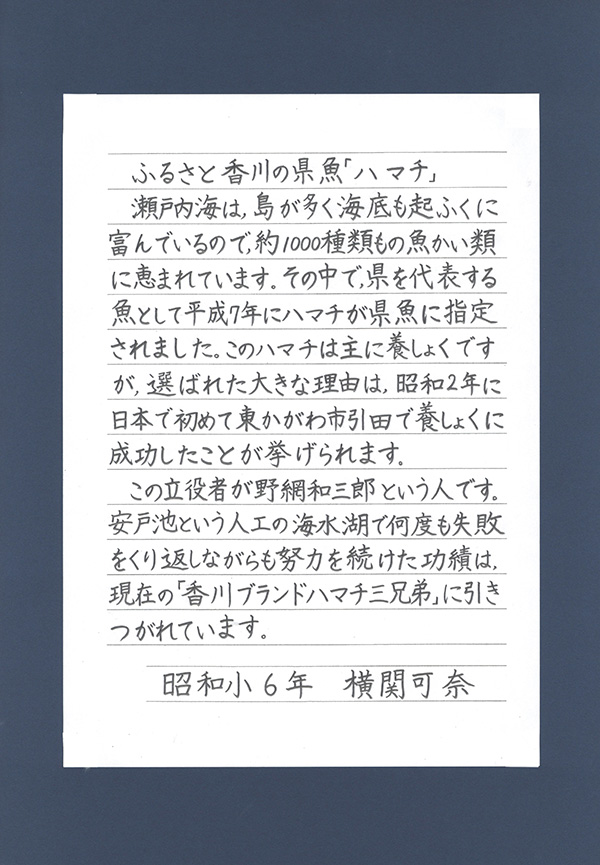 ふるさと香川の県魚「ハマチ」
瀬戸内海は,島が多く海底も起ふくに
富んでいるので,約1000種類もの魚かい類
に恵まれています。その中で,県を代表する
魚として平成7年にハマチが県魚に指定
されました。このハマチは主に養しょくです
が,選ばれた大きな理由は,昭和2年に
日本で初めて東かがわ市引田で養しょくに
成功したことが挙げられます。
この立役者が野網和三郎という人です。
安戸池という人工の海水湖で何度も失敗
をくり返しながらも努力を続けた功績は,
現在の「香川ブランドハマチ三兄弟」に引き
つがれています。
昭和小6年 横関可奈